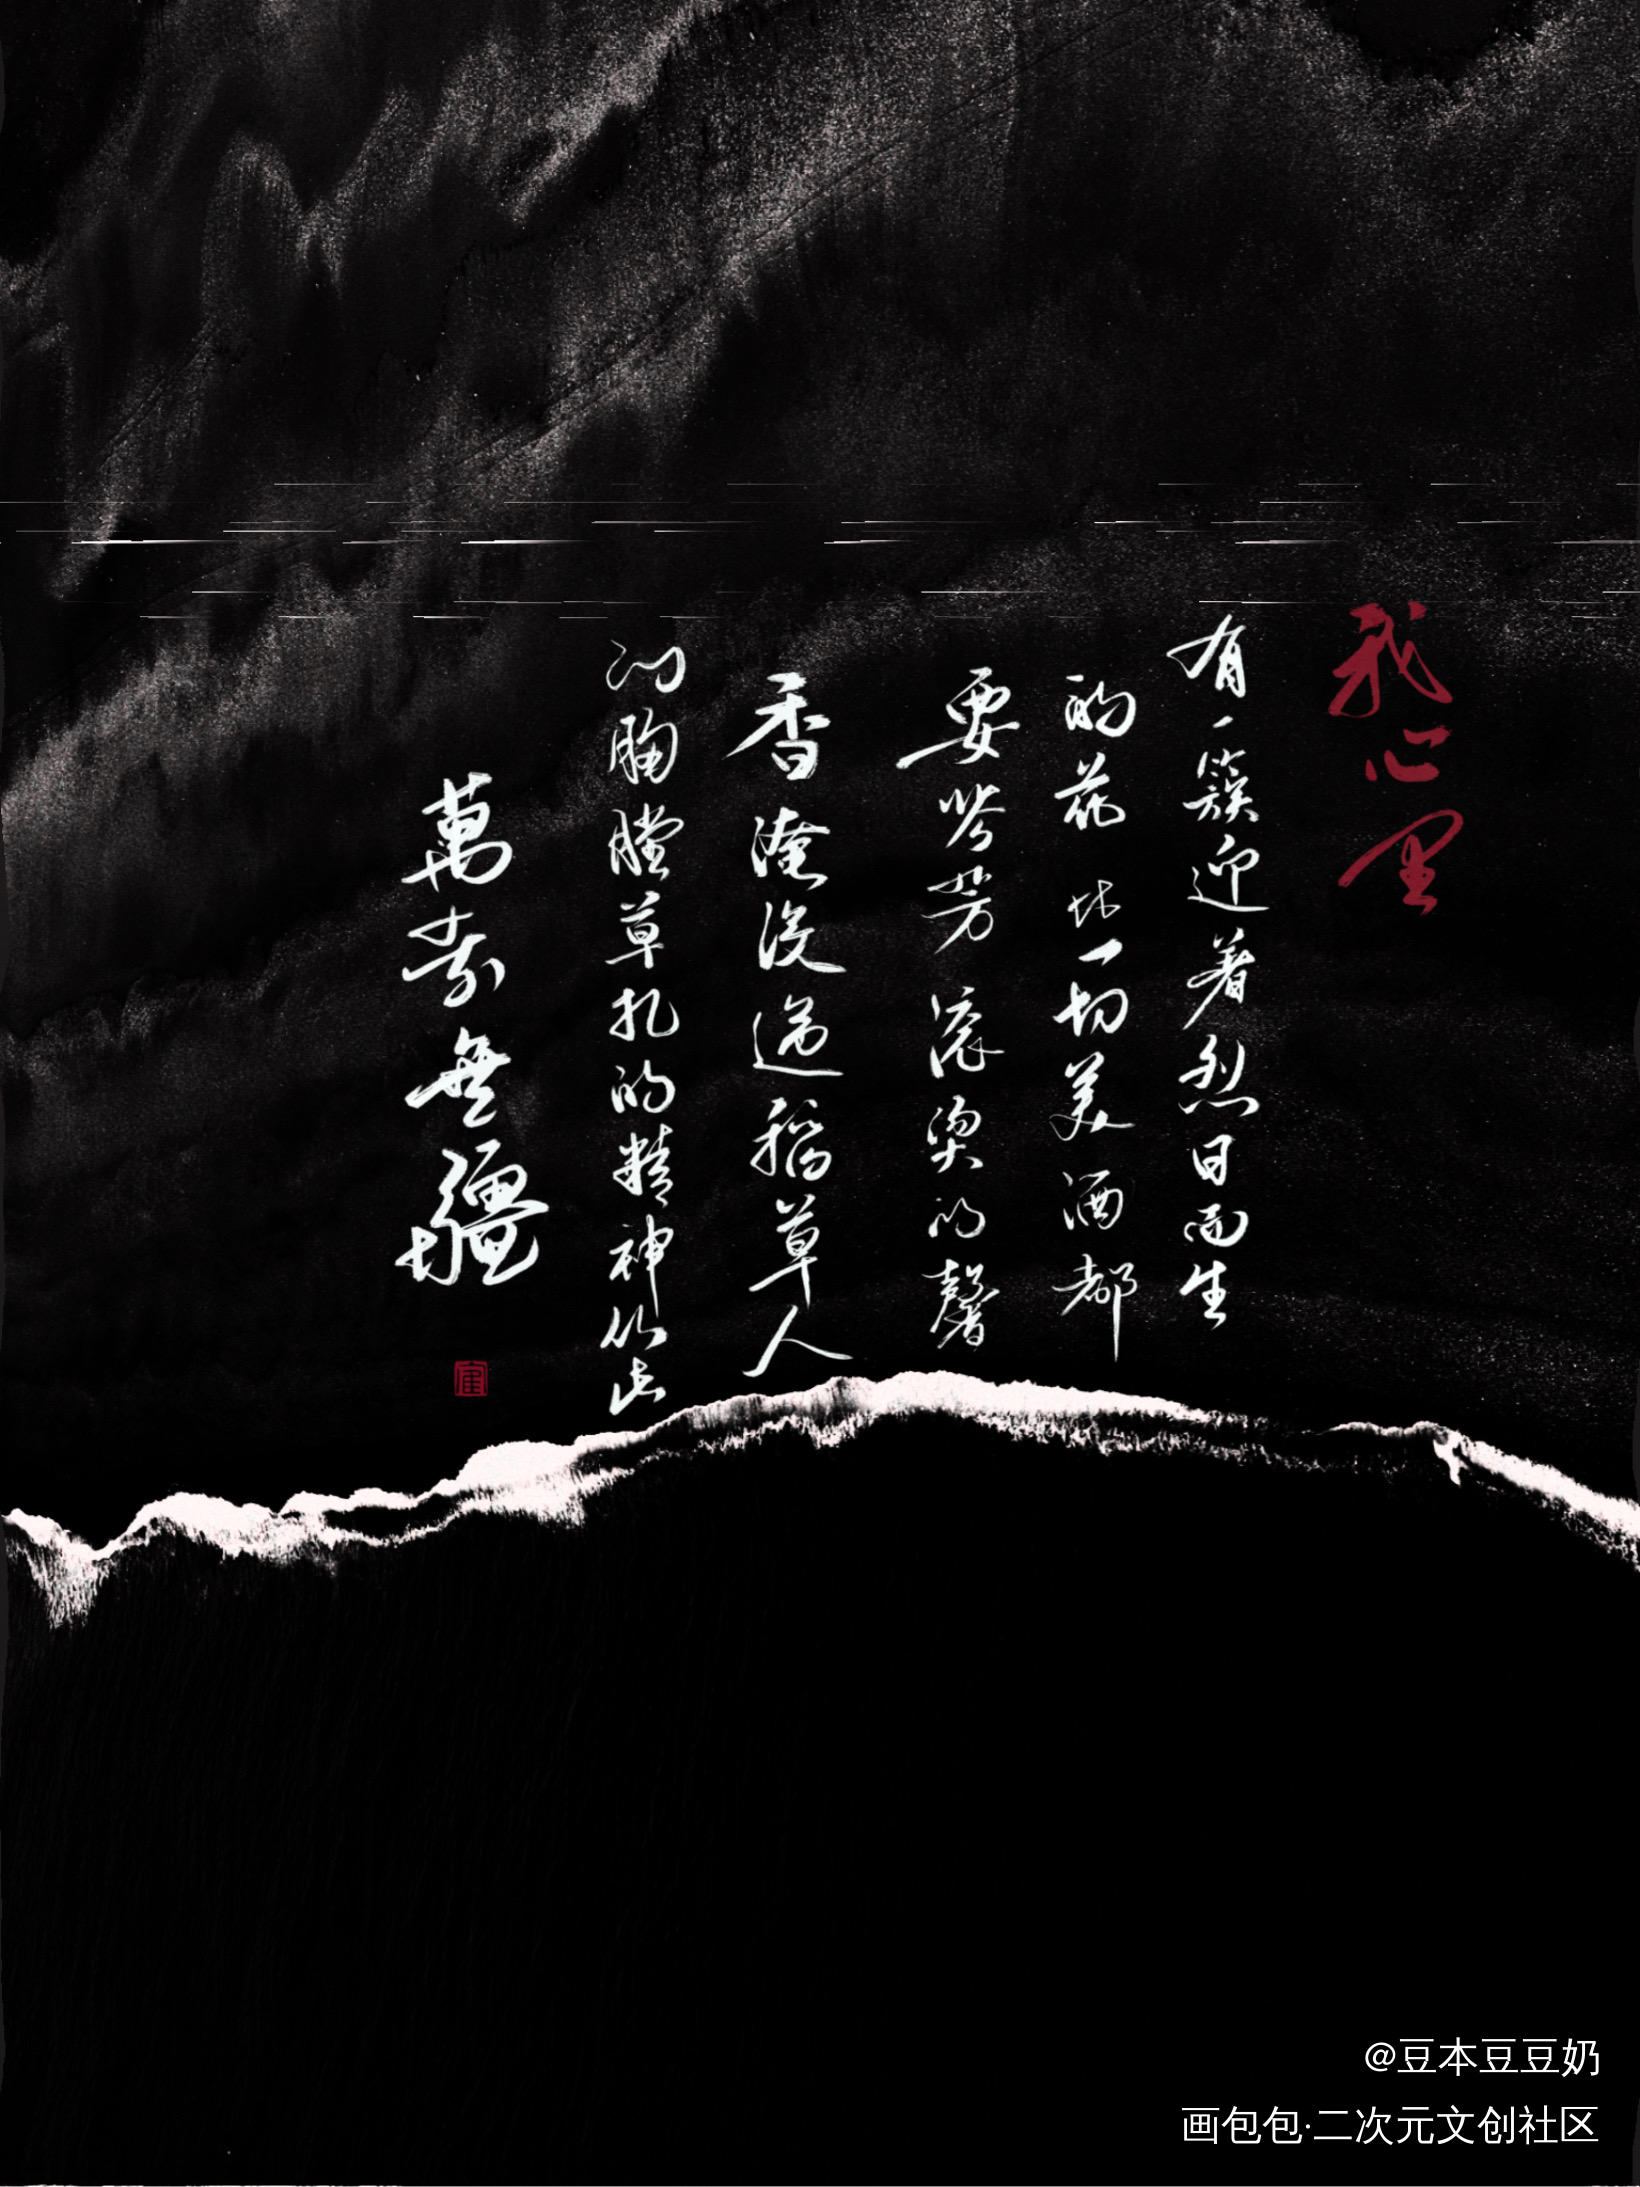 我心里
有一簇迎着烈日而生
的花 比一切美酒都
要芬芳 滚烫的馨
香淹没过稻草人
的胸膛草扎的精神从此
萬寿無疆
@豆本豆豆奶
画包包·二次元文创社区